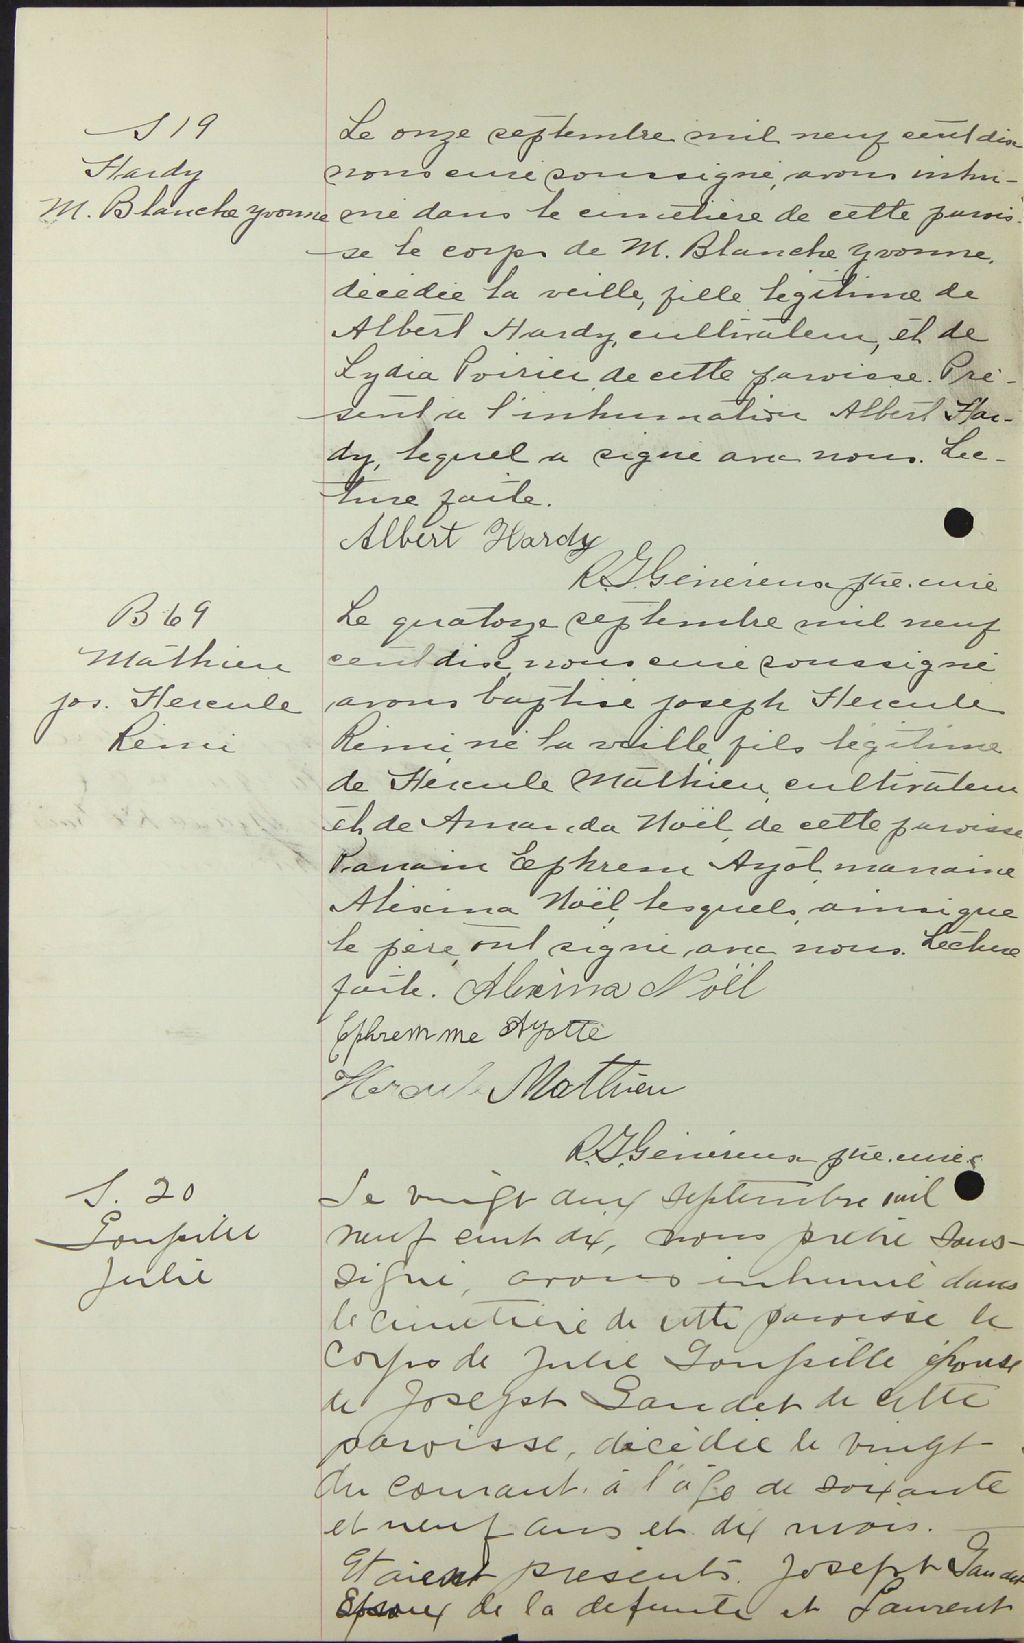 S 19
Hardy
M. Blanche Yvonne
Le onze septembre mil neuf cent dix
nous curé soussigné, avons inhu-
mé dans le cimetière de cette parois-
se le corps de M. Blanche Yvonne,
décédée la veille, fille légitime de
Albert Hardy, cultivateur, et de
Lydia Poirier de cette paroisse. Pré-
sent à l'inhumation Albert Har-
dy, lequel a signé avec nous. Lec-
ture faite.
Albert Hardy
R. G. Généreux ptre. curé
B 69
Mathieu
Jos. Hercule
Rémi
Le quatorze septembre mil neuf
cent dix, nous curé soussigné
avons baptisé Joseph Hercule
Rémi, né la veille, fils légitime
de Hercule Mathieu, cultivateur
et de Amanda Noël, de cette paroisse
Parrain Ephrem Ayot, marraine
Alexina Noël, lesquels, ainsi que
le père, ont signé avec nous. Lecture
faite. Alexina Noël
Ephremme Ayotte
Hercule Mathieu
R. G. Généreux ptre. curé
S. 20
Goupille
Julie
Le vingt deux septembre mil
neuf cent dix, nous prêtre sous-
signé, avons inhumé dans
le cimetière de cette paroisse le
corps de Julie Goupille épouse
de Joseph Gaudet de cette
paroisse, décédée le vingt
du courant, à l'âge de soixante
et neuf ans et dix mois.
Etaient présents. Joseph Gaudet
Epoux de la defunte et Laurent